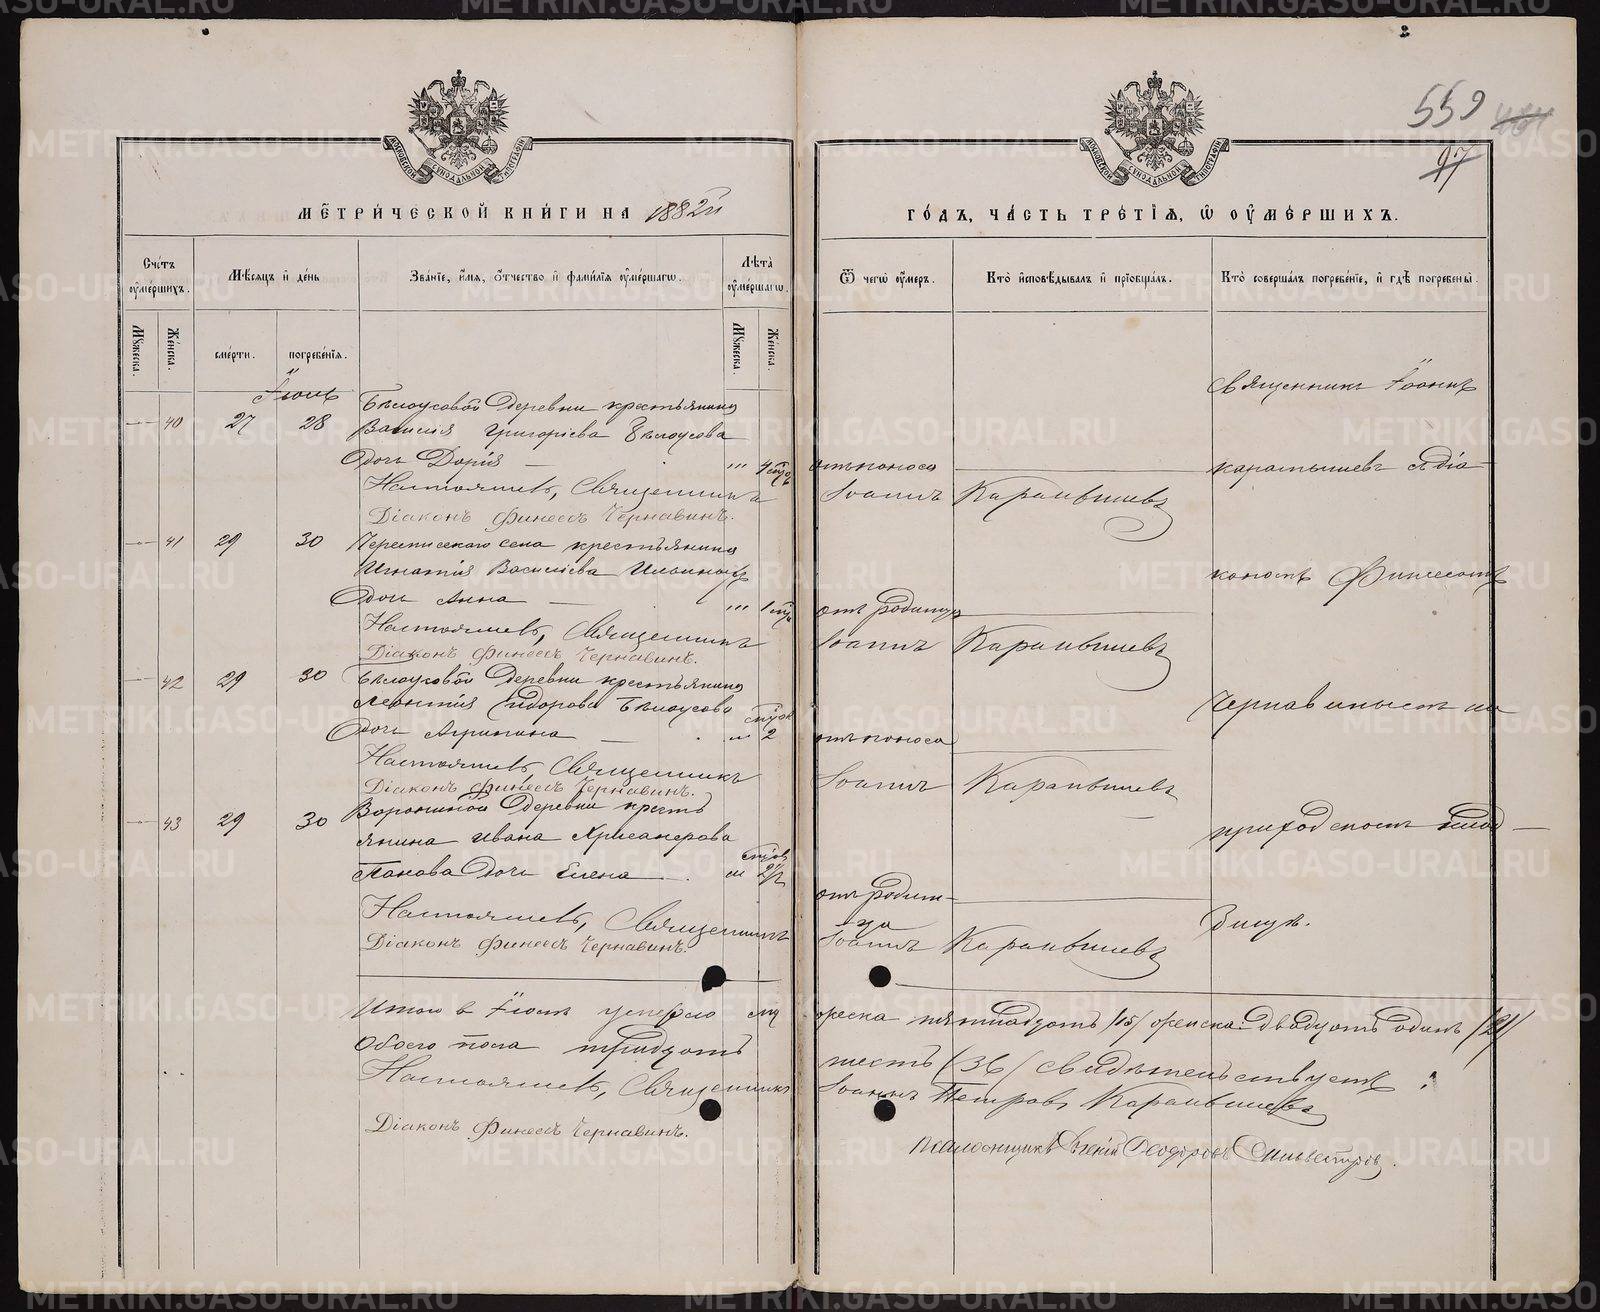 МОСКОВСКОЙ СѴНОДАЛЬНОЙ ТИПОГРАФІИ
МЕТРИЧЕСКОЙ КНИГИ НА 1882й
Счетъ умершихъ.
Мѣсяцъ и день
Званіе, имя, отчество и фамилія умершагѡ.
Лѣта умершагѡ.
Мужеска.
Женска.
смерти.
погребенія.
Мужеска.
Женска.
Іюль
Бѣлоусовой деревни крестьянина
40 27 28 Василія Григоріева Бѣлоусова
Дочь Дарія — " 4
Настоятель, Священникъ
Діаконъ Финеесъ Чернавинъ.
41 29 30 села крестьянина
Игнатія Василіева
Дочь Анна — " 1
Настоятель, Священникъ
Діаконъ Финеесъ Чернавинъ.
42 29 30 Бѣлоусовой деревни крестьянина
Леонтія Сидорова Бѣлоусова
Дочь Агрипина — " 2
Настоятель, Священникъ
Діаконъ Финеесъ Чернавинъ.
Ворониной деревни кресть
43 29 30 янина Ивана Хрисанфова
Панова дочь Елена " 2½
Настоятель, Священникъ
Діаконъ Финеесъ Чернавинъ.
Итого въ Іюлѣ умерло му
Обоего пола тридцать
Настоятель, Священникъ
Діаконъ Финеесъ Чернавинъ.
559
97
МОСКОВСКОЙ СѴНОДАЛЬНОЙ ТИПОГРАФІИ
ГОДЪ, ЧАСТЬ ТРЕТІЯ, Ѡ УМЕРШИХЪ.
Ѿ чегѡ умеръ.
Кто исповѣдывалъ и пріобщалъ.
Кто совершалъ погребеніе, и гдѣ погребены.
Священникъ Іоаннъ
отъ поноса
Карамышевъ съ діа
Іоаннъ Карамышевъ
кономъ Финеесомъ
отъ родимца
Іоаннъ Карамышевъ
Чернавинымъ на
отъ поноса
Іоаннъ Карамышевъ
приходскомъ клад
отъ родим-
ца
бищѣ.
Іоаннъ Карамышевъ
жеска пятнадцать /15/ женска двадцать одинъ /21/
шесть /36/ свидѣтельствуетъ:
Іоаннъ Петровъ Карамышевъ
Псаломщикъ Евгеній Ѳеодоровъ Сильвестровъ.
METRIKI.GASO-URAL.RU